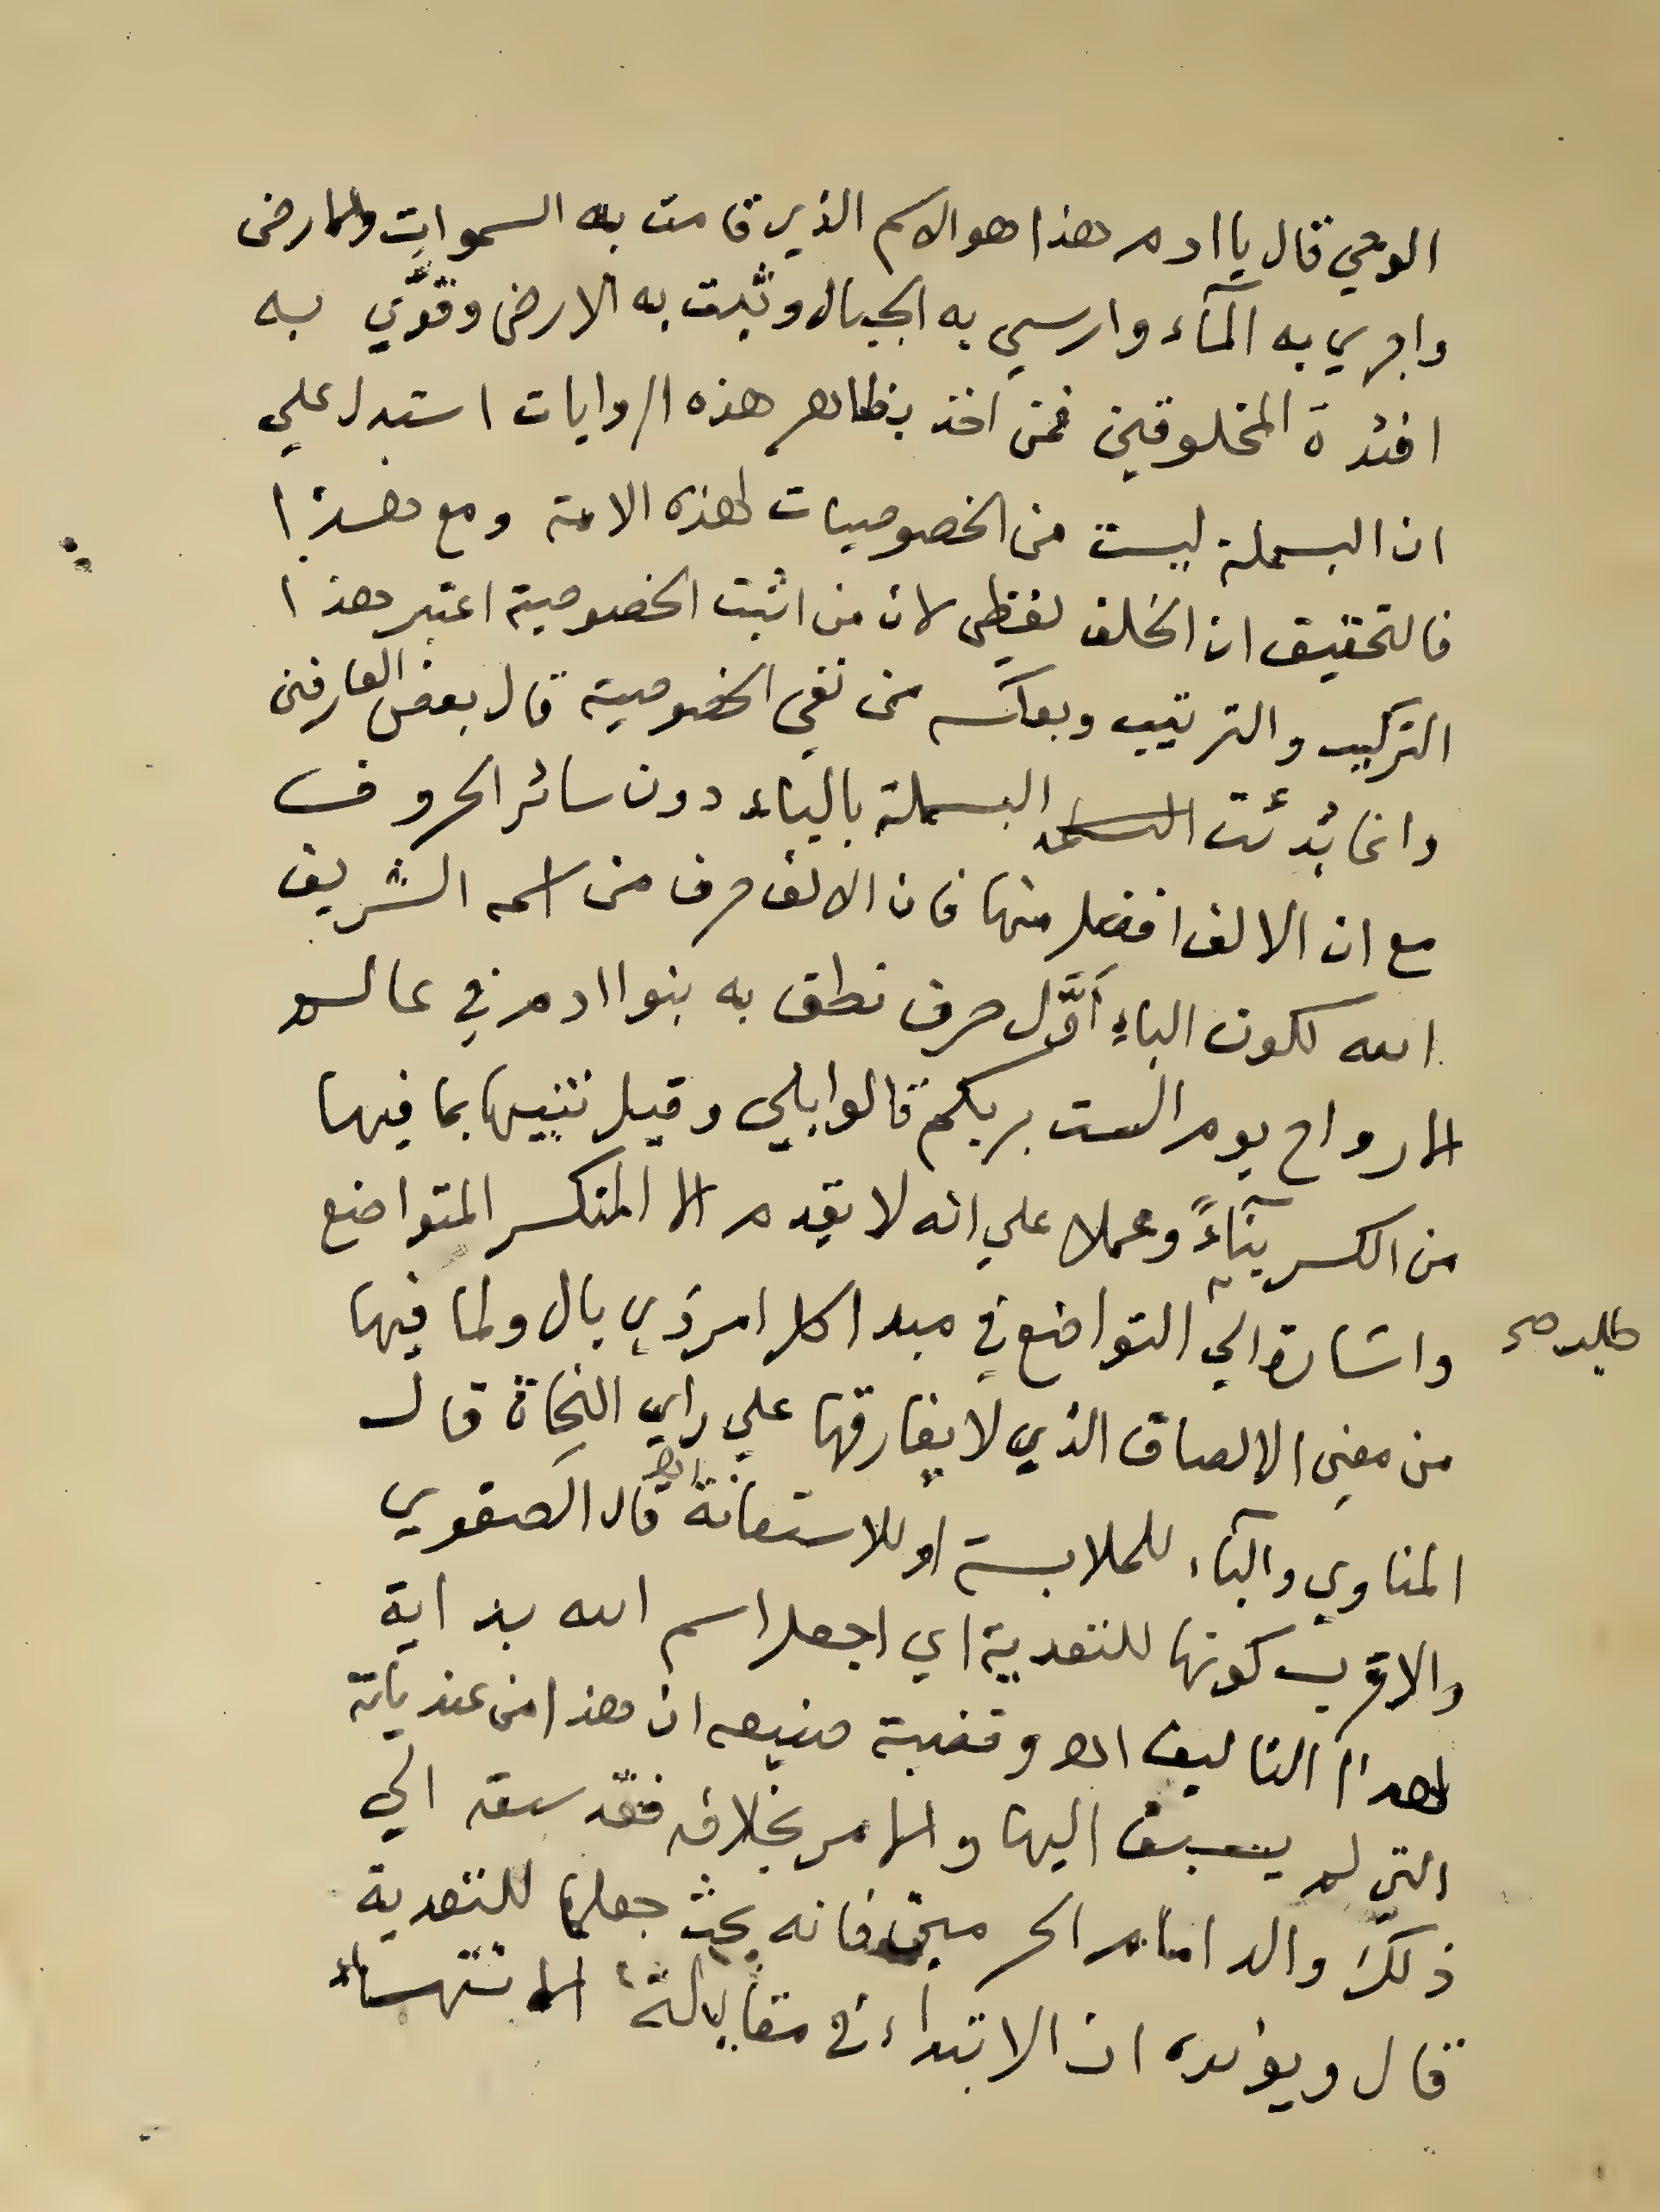 الوحي قال يا ادم هذا هو الاسم الذي قامت به السموات والارض
واجري به المآء وارسي به الجبال وثبت به الارض وقوّي به
افئدة المخلوقين فمن اخذ بظاهر هذه الروايات استدل علي
ان البسملة ليست من الخصوصيات لهذه الامة ومع هذا
فالتحقيق ان الخلف لفظي لان من اثبت الخصوصية اعتبر هذا
التركيب والترتيب وبعكسه من نفي الخصوصية قال بعض العارفين
وانما بُدئت البسملة بالبآء دون سائر الحروف
مع ان الالف افضل منها فان الالف حرف من اسمه الشريف
الله لكون الباء أوَّل حرف نطق به بنوا ادم في عالم
الارواح يوم الست بربكم قالوا بلي وقيل تنبيها بما فيها
من الكسر بنآءً وعملا علي انه لا يقدم الا المنكسر المتواضع
واشارة الي التواضع في مبدا كل امر ذي بال ولما فيها
طلبه صح
من معني الالصاق الذي لا يفارقها علي راي النحاة قال
المناوي والبآء للملابسة او للاستعانة قال الصفوي
والاقرب كونها للتعدية اي اجعل اسم الله بداية
لهذا التاليف اهـ وقضية صنيعه ان هذا من عندياته
التي لم يسبق اليها والامر بخلافه فقد سبقه الي
ذلك والد امام الحرمين فانه بحث جعلها للتعدية
قال ويؤيده ان الابتداء في مقابلة الانتهاء